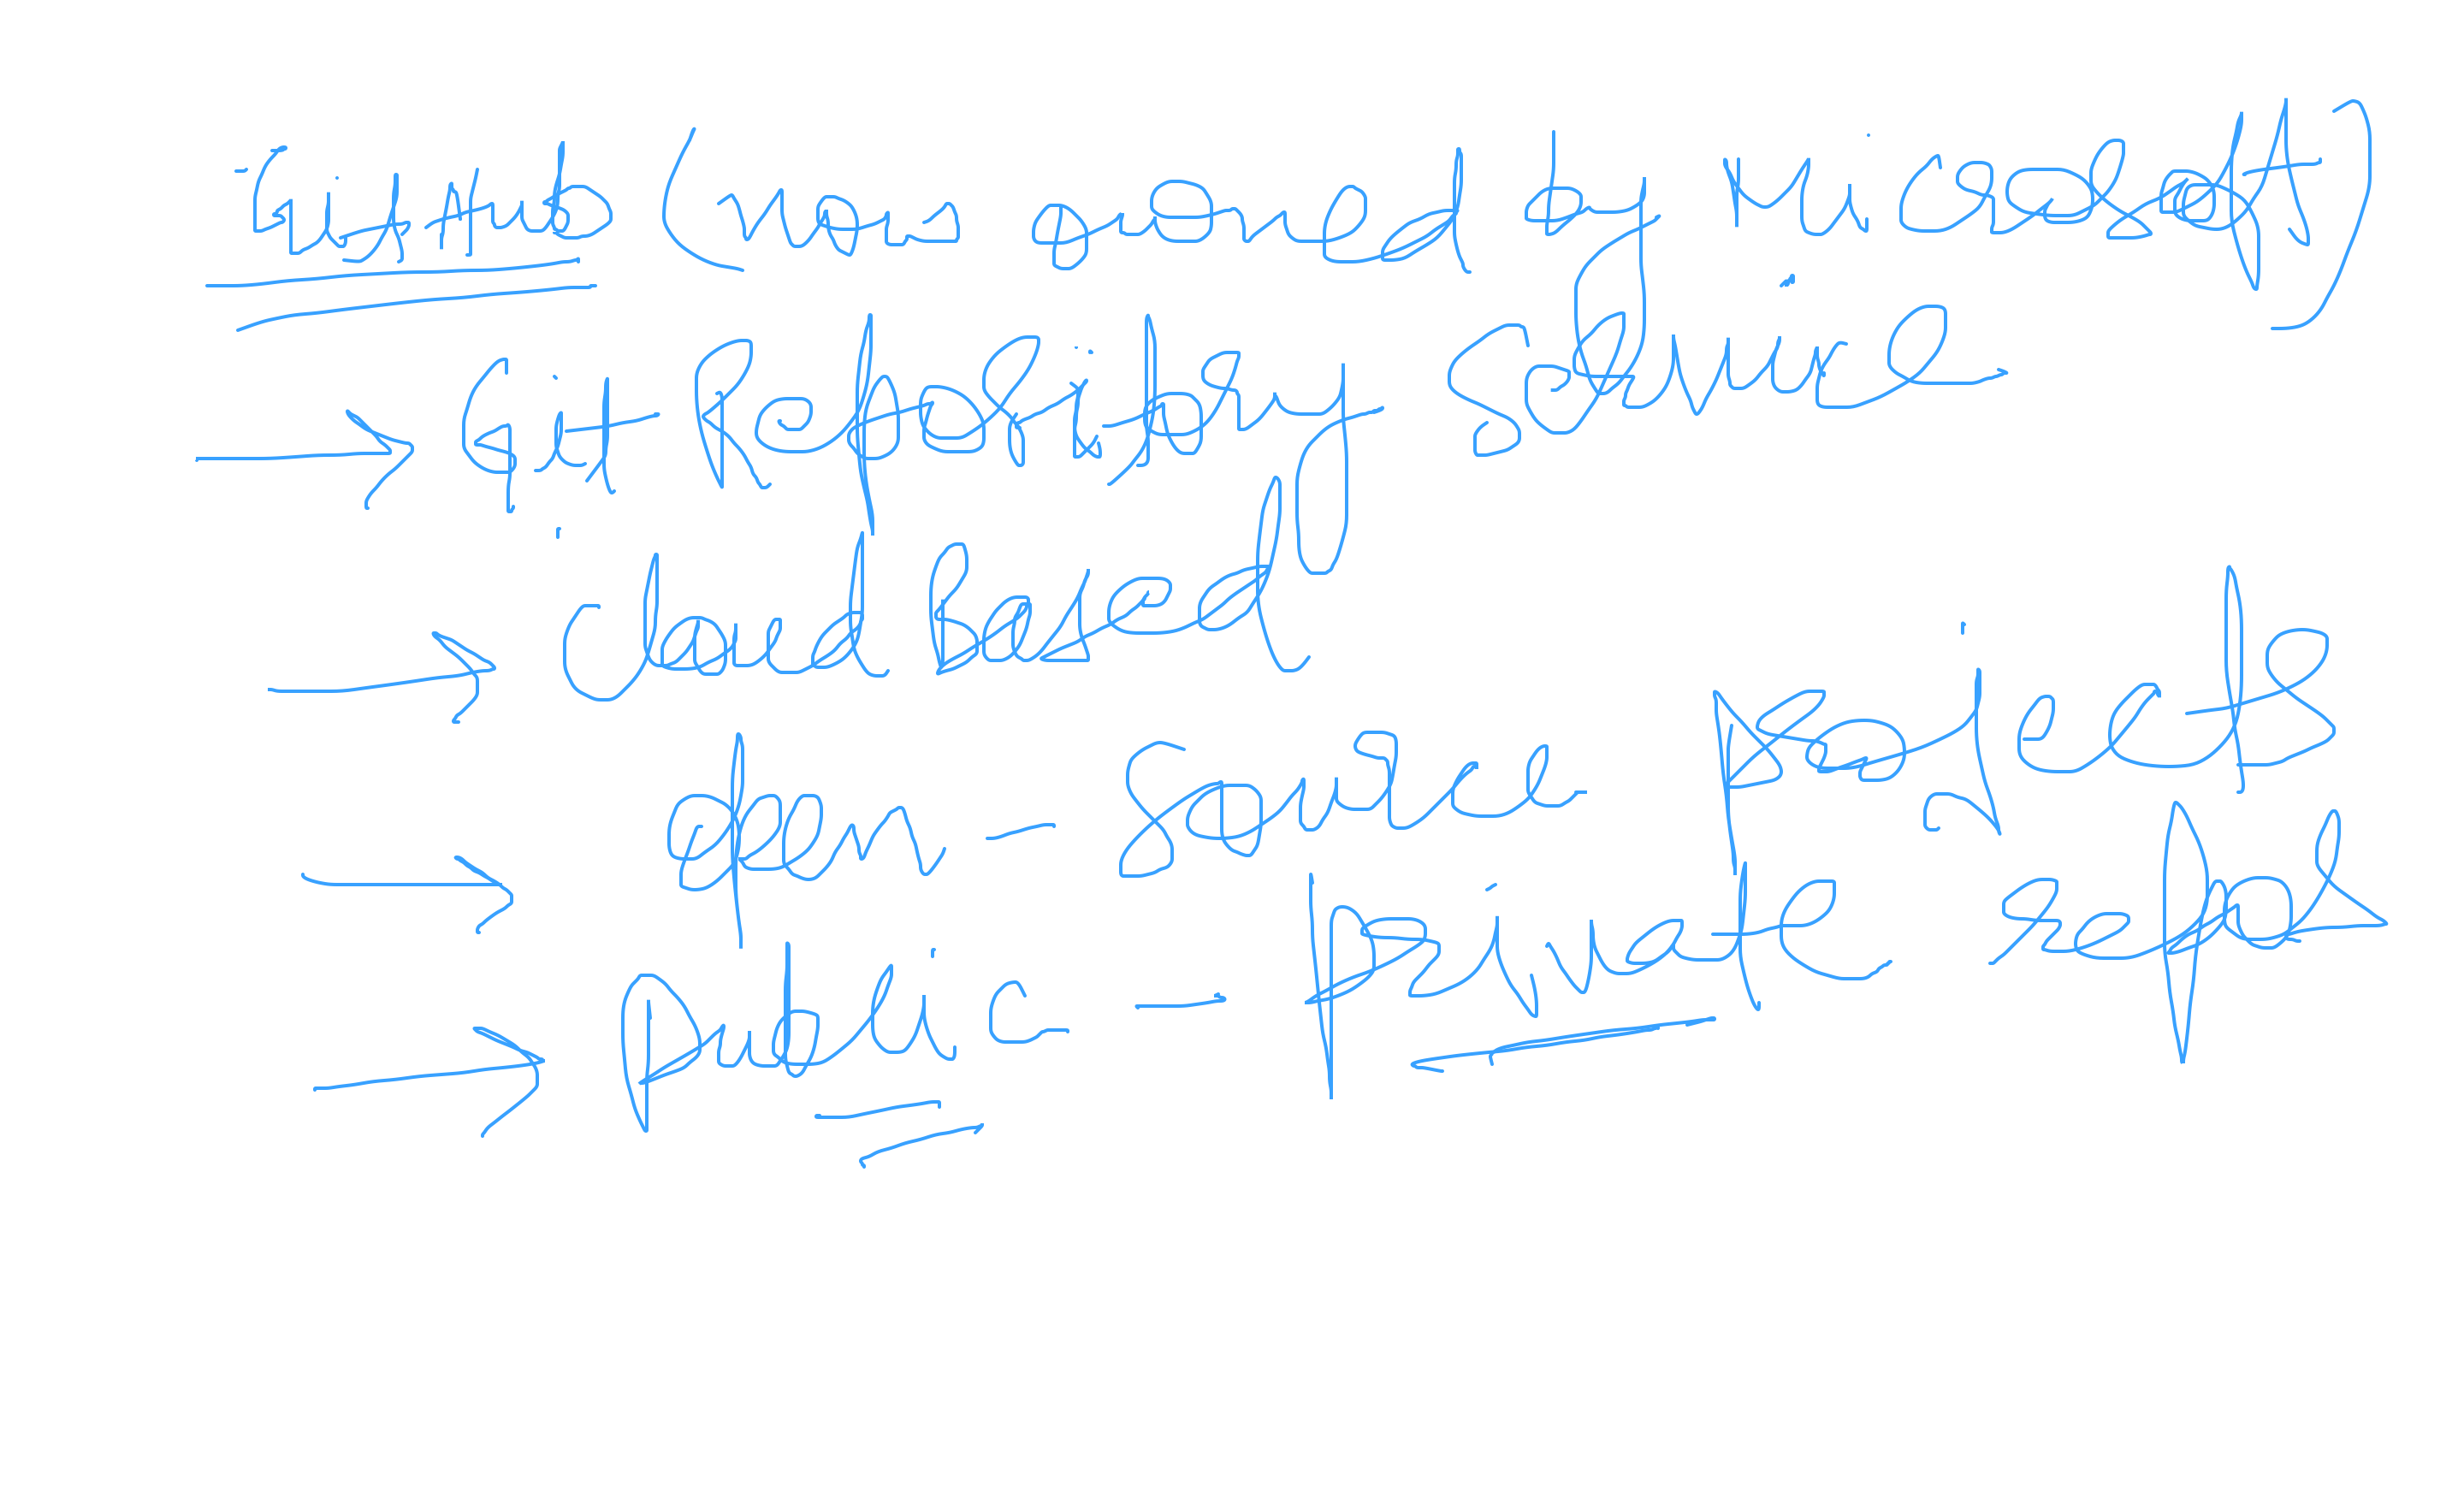 Github (was sponsored by Microsoft)
→ Git Repository Service
→ Cloud Based
→ open - source projects
→ public - private repos